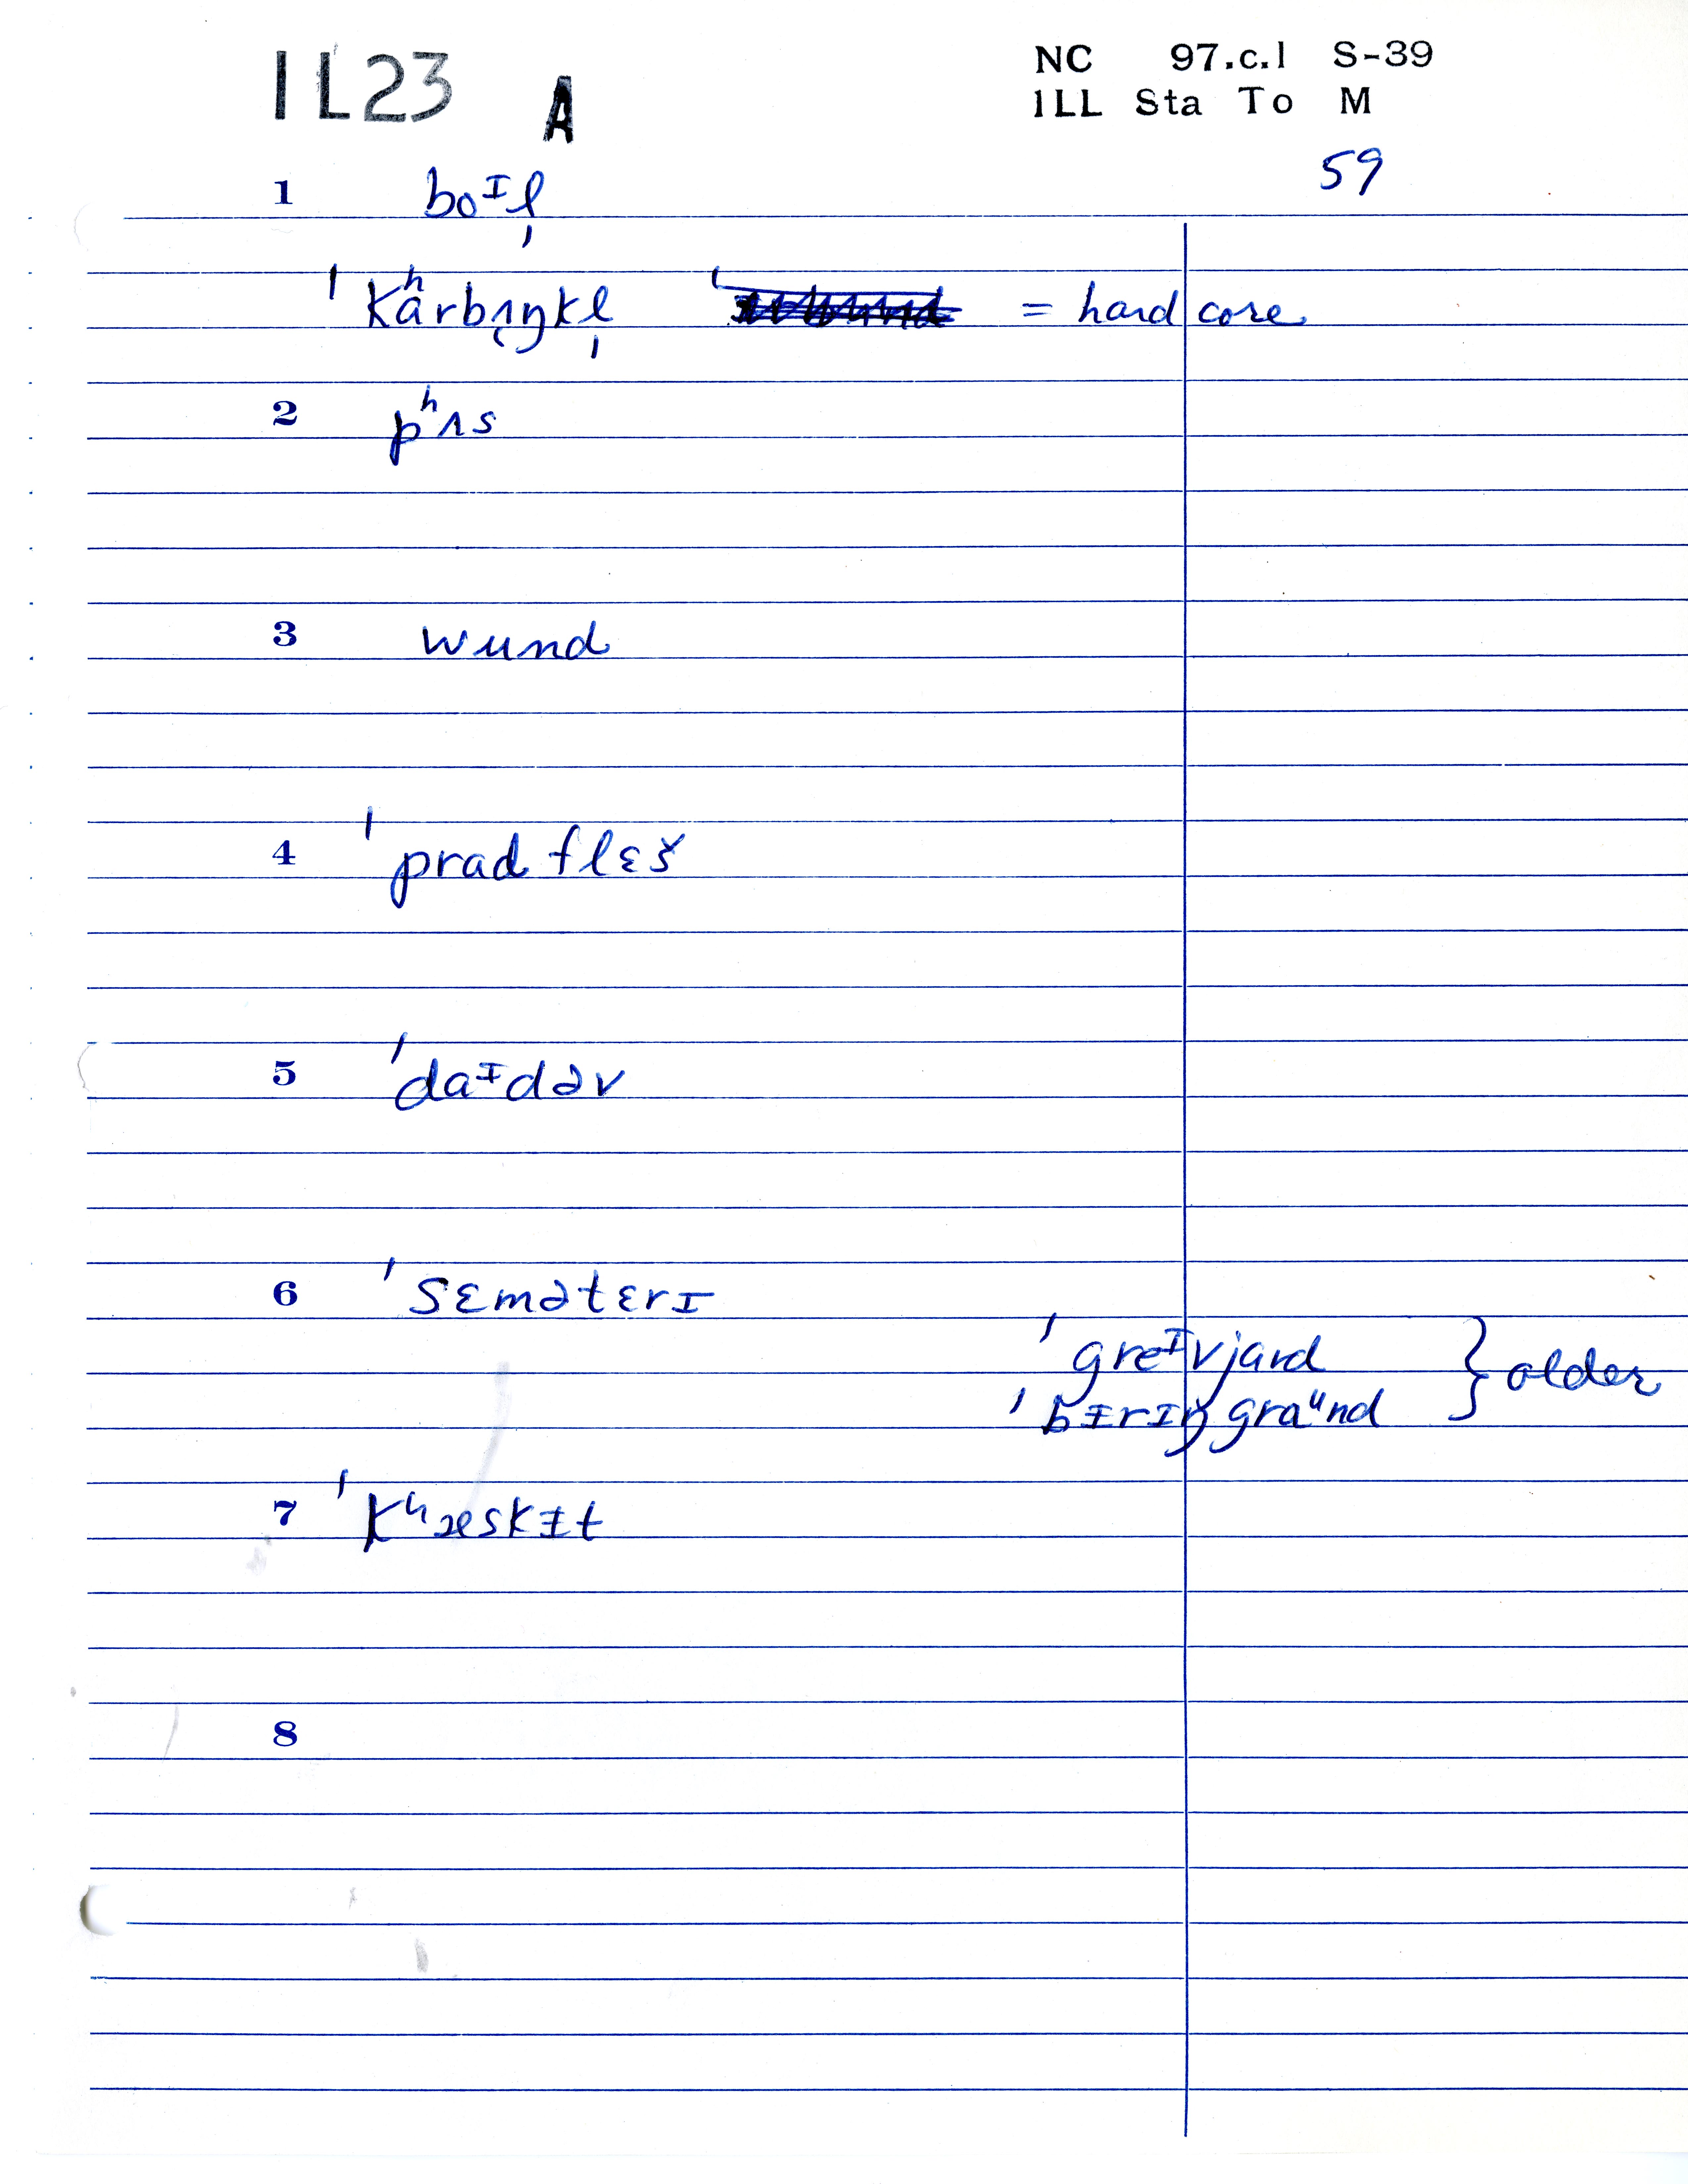 1L23 A
NC 97.c.1 S-39
ILL Sta To M
59
1 boᶦl̩
ˈkʰarbʌŋkl̩ = hard core
2 pʰʌs
3 wund
4 ˈprad flɛš
5 ˈdaᶦdəv
6 ˈsɛmətɛrɪ
ˈgreᶦvjard } older
ˈbɨrɪŋ graᵘnd
7 ˈkʰæskɨt
8